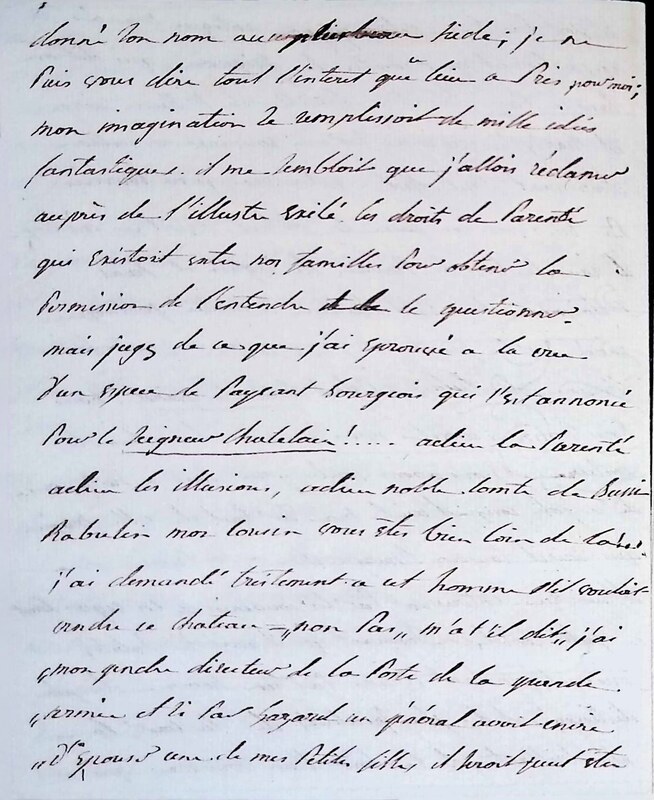 donné son nom au siècle ; je ne
puis vous dire tout l'interet que ce lieu a pris pour moi ;
mon imagination se remplissoit de mille idées
fantastiques. il me sembloit que j'allois réclamer
auprès de l'illustre exilé les droits de parenté
qui existoit entre nos familles pour obtenir la
permission de l'entendre de le questionner.
mais jugez de ce que j'ai eprouvé a la vue
d'un espece de paysant bourgeois qui s'est annoncé
pour le seigneur chatelain ! .... adieu la parenté
adieu les illusions, adieu noble comte de Bussi
Rabutin mon cousin vous etes bien loin de
j'ai demandé tristement a cet homme s'il vouloit
vendre ce chateau — „non pas„ m'at'il dit„ j'ai
„mon gendre directeur de la poste de la grande
„armée et si par hazard un général avoit envie
„d'epouser une de mes petites filles il seroit peut etre